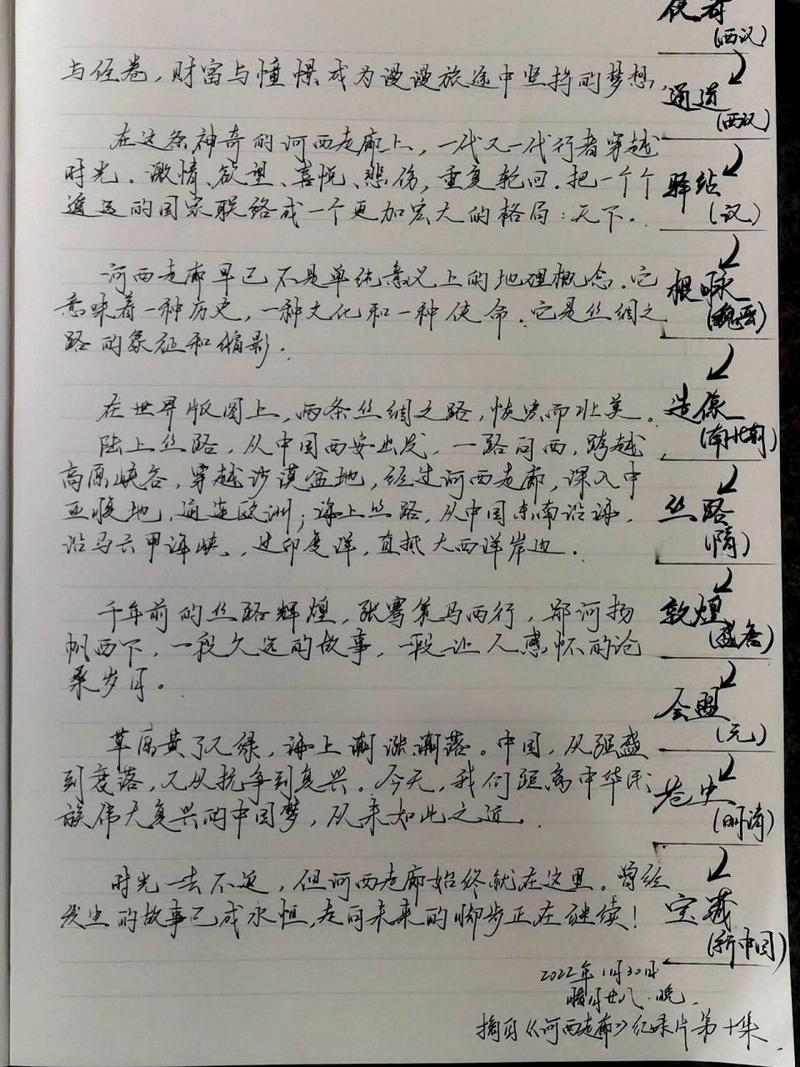 与经卷，财富与憧憬成为漫漫旅途中坚持的梦想，
在这条神奇的河西走廊上，一代又一代行者穿越
时光。激情、欲望、喜悦、悲伤，重复轮回。把一个个
遥远的国家联络成一个更加宏大的格局：天下。
河西走廊早已不是单纯意义上的地理概念。它
意味着一种历史，一种文化和一种使命。它是丝绸之
路的象征和缩影。
在世界版图上，两条丝绸之路，恢宏而壮美。
陆上丝路，从中国西安出发，一路向西，跨越
高原峡谷，穿越沙漠盆地，经过河西走廊，深入中
亚腹地，通连欧洲；海上丝路，从中国东南沿海，
沿马六甲海峡、过印度洋，直抵大西洋岸边。
千年前的丝路辉煌，张骞策马西行，郑河扬
帆西下，一段久远的故事，一段让人感怀的沧
桑岁月。
草原黄了又绿，海上潮涨潮落。中国，从强盛
到衰落，又从抗争到复兴。今天，我们距离中华民
族伟大复兴的中国梦，从来如此之近。
时光一去不返，但河西走廊始终就在这里。曾经
发生的故事已成永恒，走向未来的脚步正在继续！
2022年1月30日
腊月廿八·晚
摘自《河西走廊》纪录片第十集
使者
(西汉)
通道
(西汉)
驿站
(汉)
根脉
(魏晋)
造像
(南北朝)
丝路
(隋)
敦煌
会盟
(元)
苍生
(明清)
宝藏
(新中国)